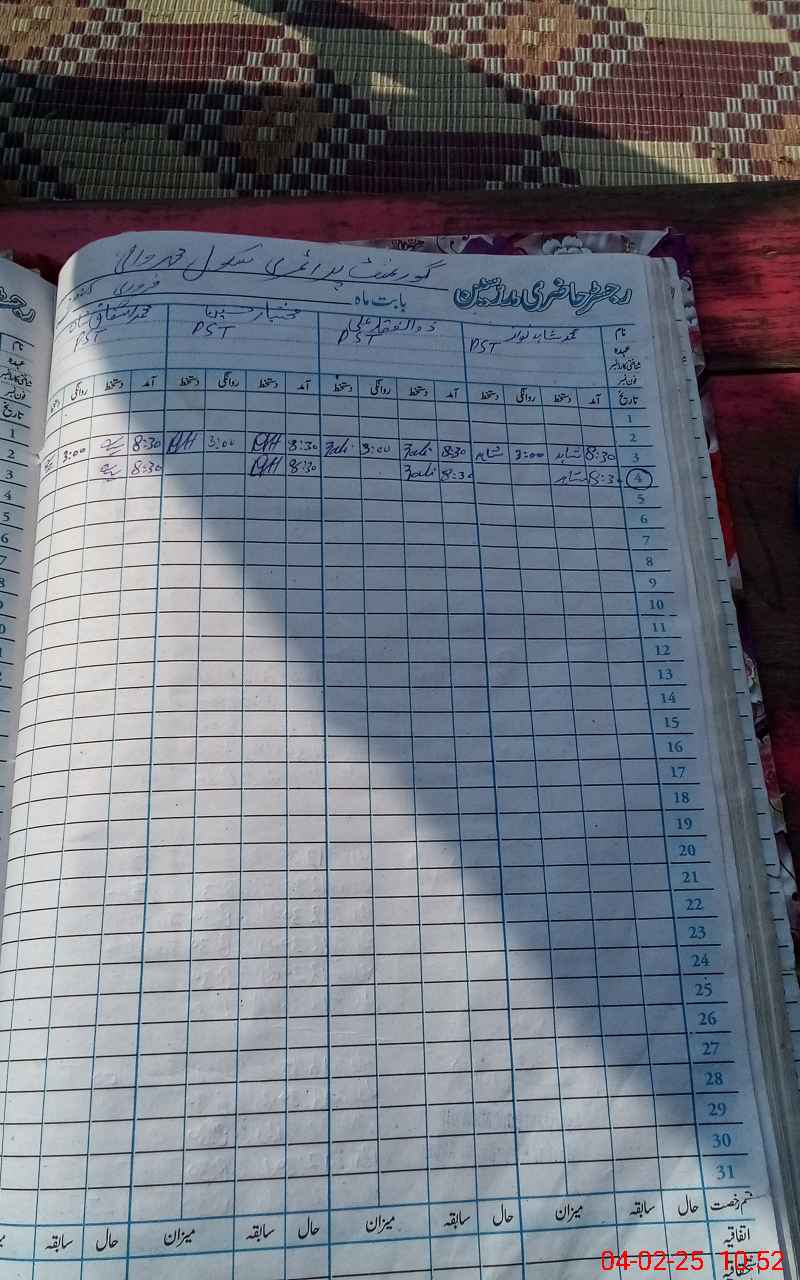 گورنمنٹ پرائمری سکول
رجسٹر حاضری مدرسین بابت ماہ فروری
نام محمد شاہد نواز ذوالفقار علی مختیار حسین محمد اشفاق
عہدہ PST PST PST PST
شناختی کارڈ نمبر
فون نمبر
تاریخ آمد دستخط روانگی دستخط آمد دستخط روانگی دستخط آمد دستخط روانگی دستخط آمد دستخط روانگی دستخط
1
2
3 8:30 شاہد 3:00 شاہد 8:30 Zali 3:00 Zali 8:30 3:00 8:30 3:00
4 8:30 شاہد 8:30 Zali 8:30 8:30
5
6
7
8
9
10
11
12
13
14
15
16
17
18
19
20
21
22
23
24
25
26
27
28
29
30
31
قسم رخصت حال سابقہ میزان حال سابقہ میزان حال سابقہ میزان حال سابقہ
اتفاقیہ
04-02-25 10:52